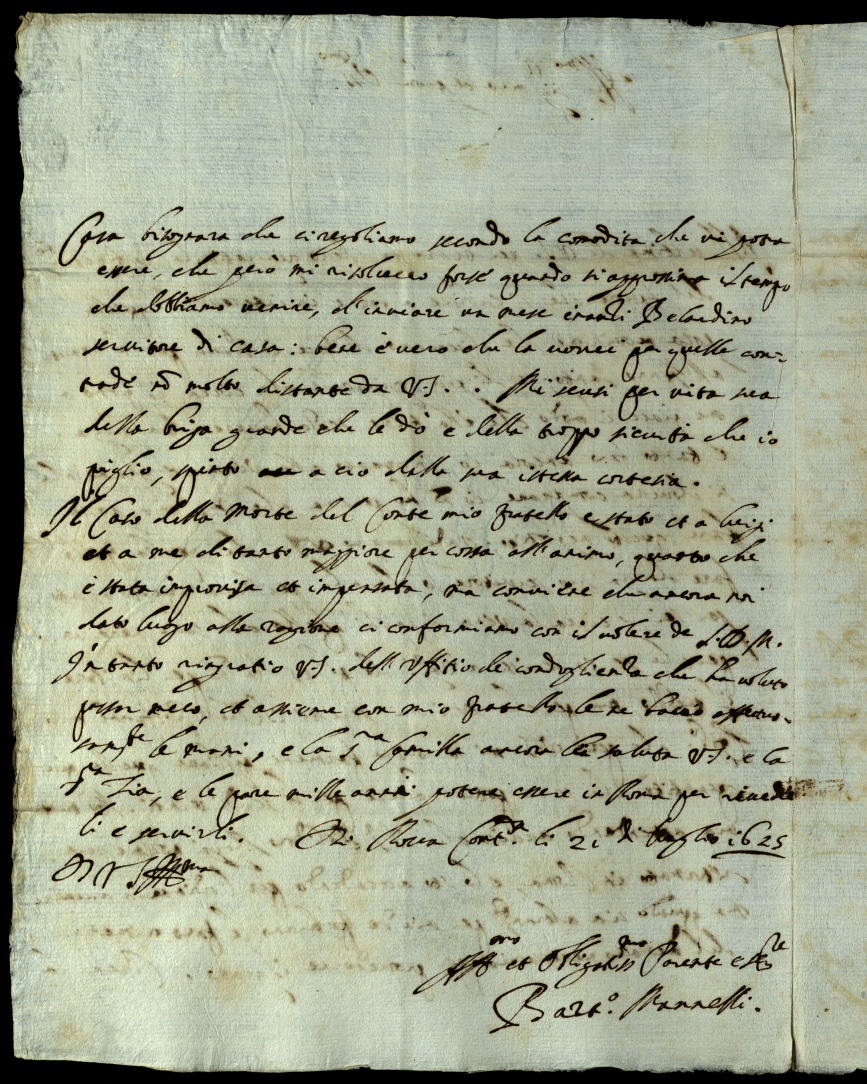 Casa bisognara che ci regoliamo secondo la comodita che vi potra
essere, che però mi risolvero forse quando si approssima il tempo
che dobbiamo venire, d'inviare un mese inanzi Belardino
servitore di casa: bene è vero che la vorrei per quelle con=
trade nō molto distante da VS. . Mi scusi per vita sua
della briga grande che le dò e della troppo sicurtà che io
piglio, spinto a cio dalla sua istessa cortesia.
Il Caso della Morte del Conte mio fratello è stato et a
et a me di tanto maggiore percossa all'animo, quanto che
è stata improvisa et impensata, ma conviene che ancora noi
dato luogo alla ragione ci conformiamo con il volere de S.D.M.
In tanto ringratio VS. dell'Uffitio de condoglienza che ha voluto
passar meco, et assieme con mio fratello le ne bacio affetuo-
samte le mani, e la Sra Camilla ancora lei saluta VS. e la
Sra Zia, e le pare mill'anni potere essere in Roma per riveder
li e servirli. Di Rocca Contra. li 21 di luglio 1625
Di VS Illma
Affmo et Obligatissmo Parente e Sre
Barto. Mannelli.